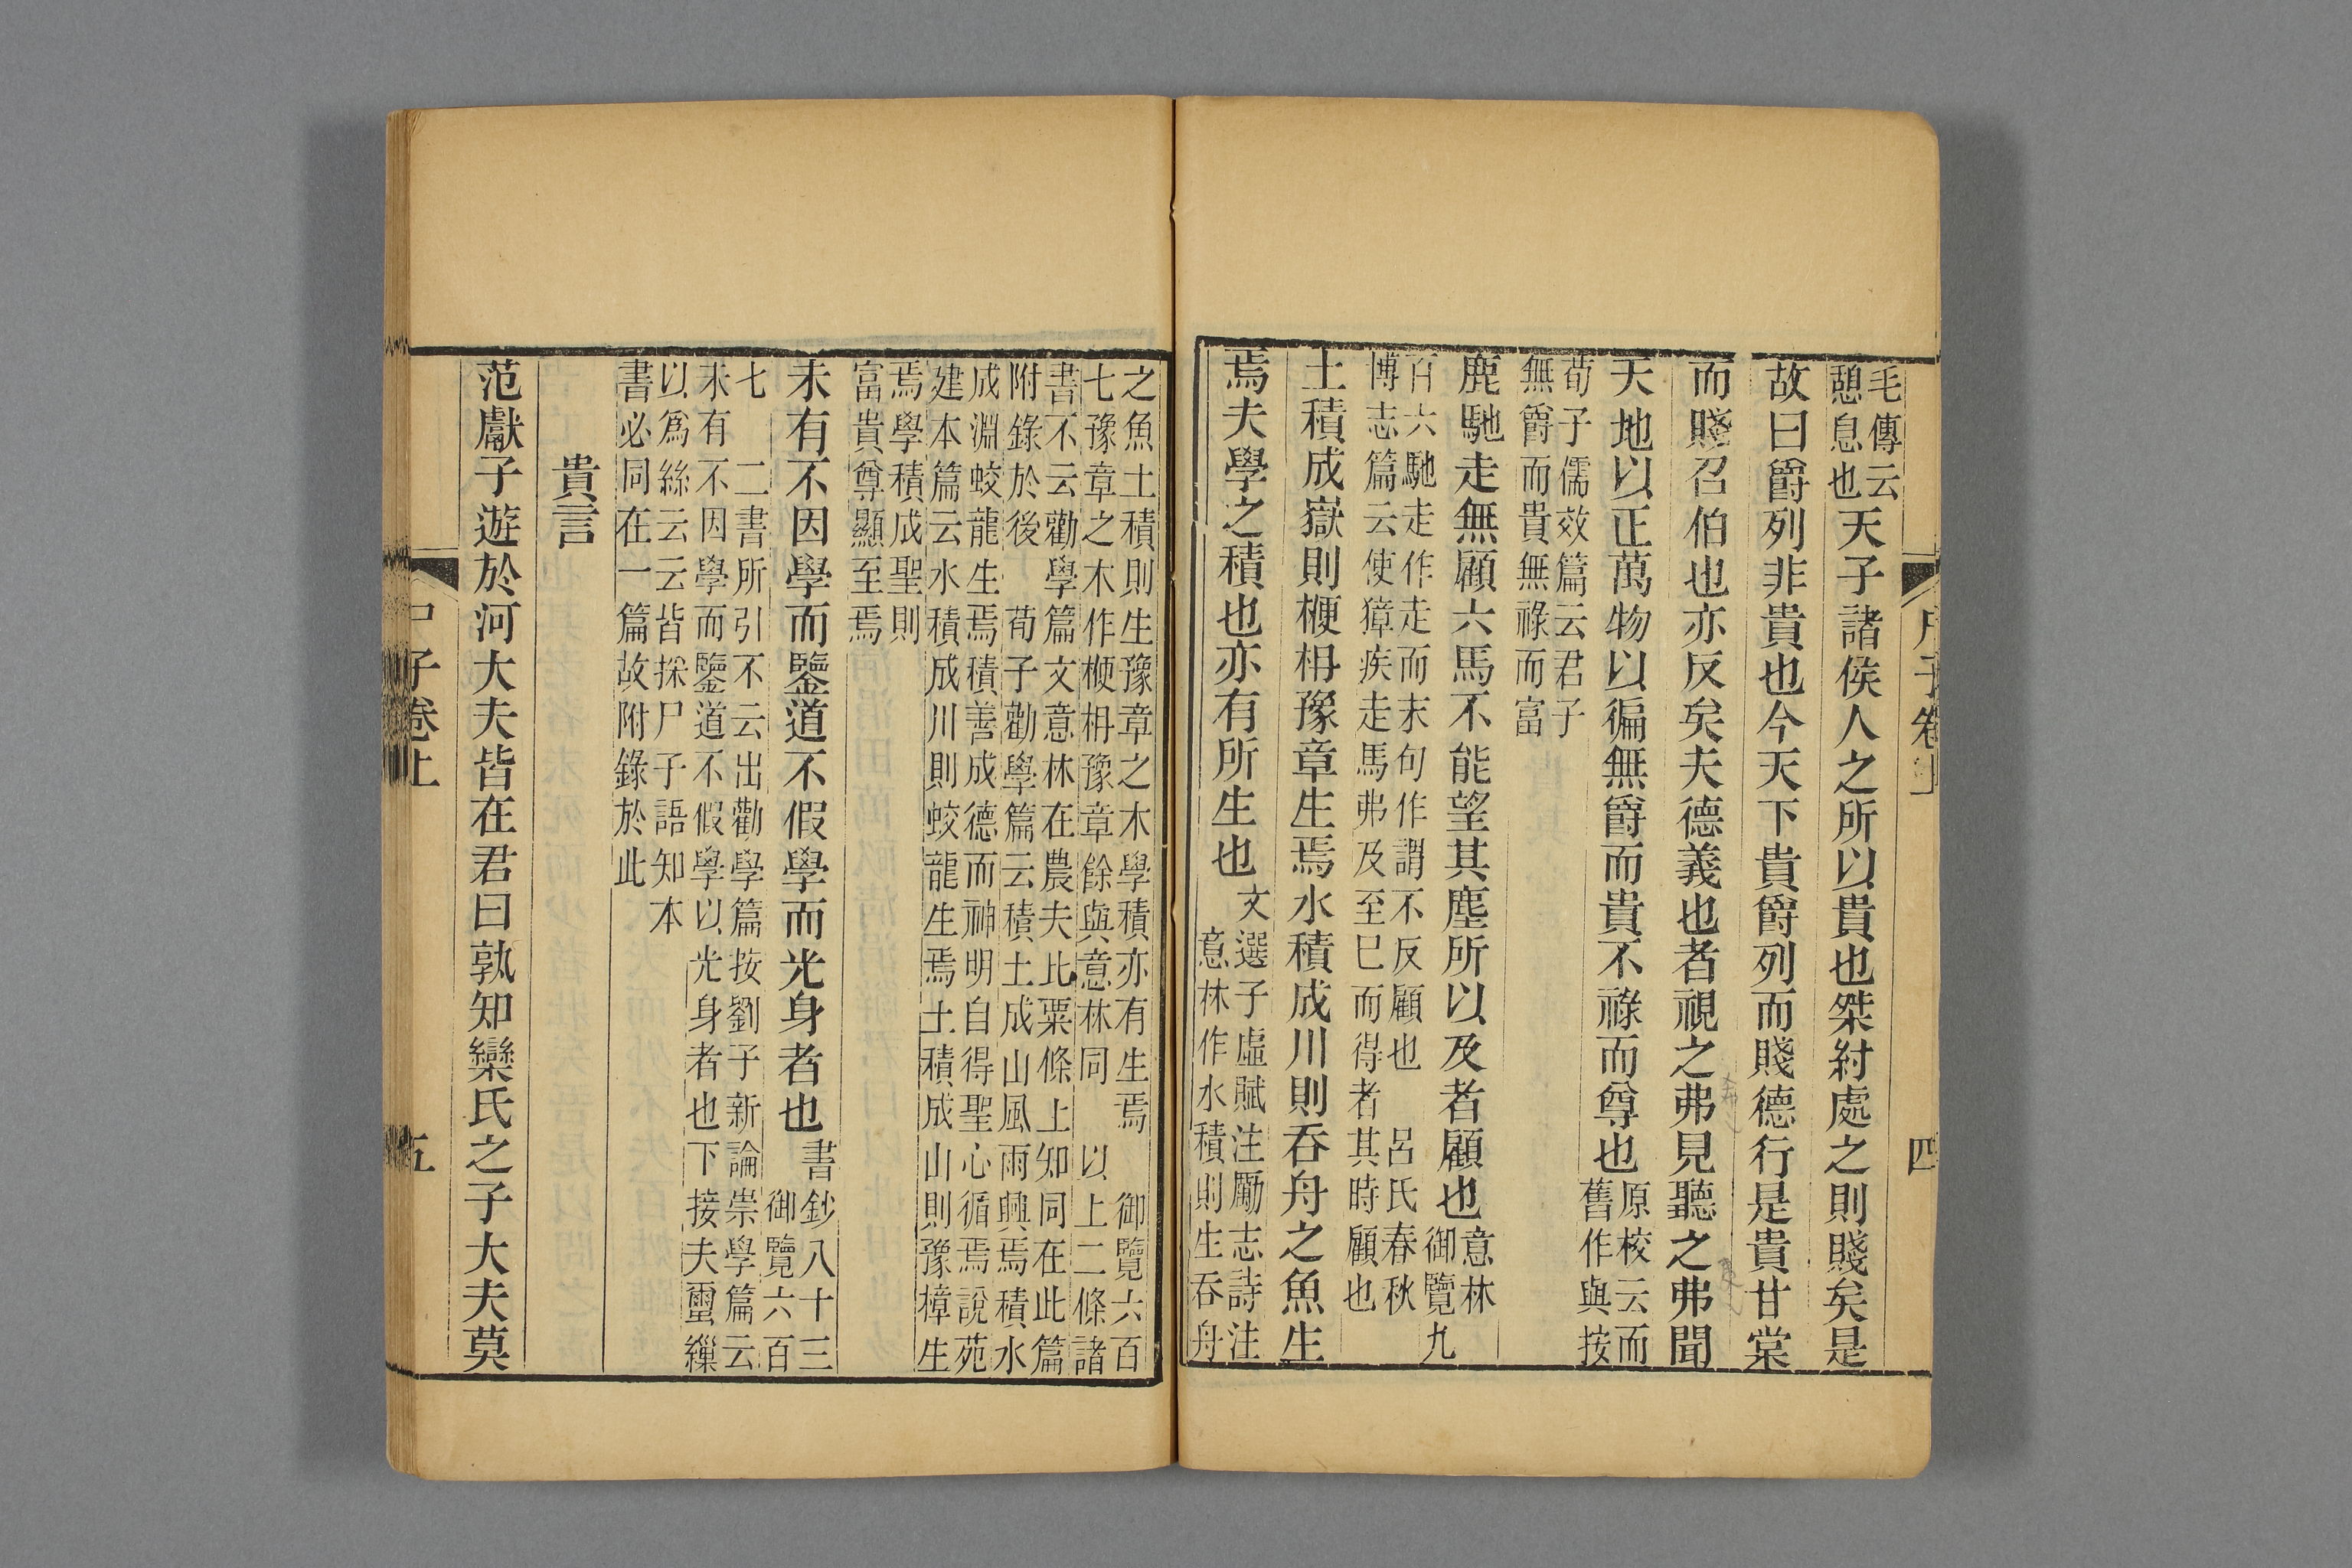 尸子卷上
四
毛傳云
憩息也
天子諸侯人之所以貴也桀紂處之則賤矣是
故曰爵列非貴也今天下貴爵列而賤德行是貴甘棠
而賤召伯也亦反矣夫德義也者視之弗見聽之弗聞
天地以正萬物以徧無爵而貴不祿而尊也
原校云而
舊作與按
荀子儒效篇云君子
無爵而貴無祿而富
鹿馳走無顧六馬不能望其塵所以及者顧也
意林
御覽九
百六馳走作走而末句作謂不反顧也　呂氏春秋
博志篇云使獐疾走馬弗及至巳而得者其時顧也
土積成嶽則楩枏豫章生焉水積成川則吞舟之魚生
焉夫學之積也亦有所生也
文選子虛賦注勵志詩注
意林作水積則生吞舟
之魚土積則生豫章之木學積亦有生焉　御覽六百
七豫章之木作楩枏豫章餘與意林同　以上二條諸
書不云勸學篇文意林在農夫比粟條上知同在此篇
附錄於後　荀子勸學篇云積土成山風雨興焉積水
成淵蛟龍生焉積善成德而神明自得聖心循焉說苑
建本篇云水積成川則蛟龍生焉土積成山則豫樟生
焉學積成聖則
富貴尊顯至焉
未有不因學而鑒道不假學而光身者也
書鈔八十三
御覽六百
七　二書所引不云出勸學篇按劉子新論崇學篇云
未有不因學而鑒道不假學以光身者也下接夫蠒繅
以爲絲云云皆採尸子語知本
書必同在一篇故附錄於此
貴言
范獻子遊於河大夫皆在君曰孰知欒氏之子大夫莫
尸子卷上
五